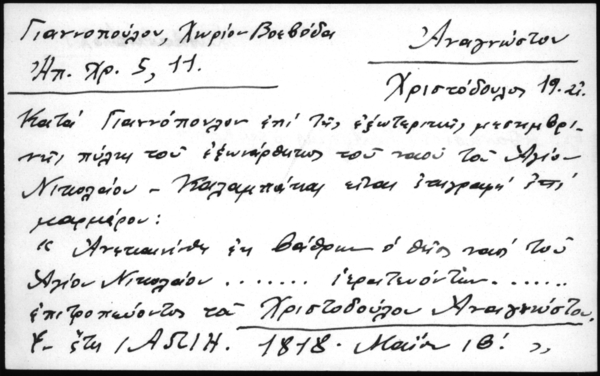 Γιαννοπούλου, Χωρίον Βοεβόδα
Ἀπ. Χρ. 5, 11.
Ἀναγνώστου
Χριστόδουλος 19. αἰ.
Κατά Γιαννόπουλον ἐπί τῆς ἐξωτερικῆς μεσημβρι-
νῆς πύλης τοῦ ἐξωνάρθηκος τοῦ ναοῦ τοῦ Ἁγίου
Νικολάου - Καλαμπάκας εἶναι ἐπιγραφή ἐπί
μαρμάρου:
« Ἀνεκαινίσθη ἐκ βάθρων ὁ θεῖος ναός τοῦ
Ἁγίου Νικολάου ....... ἱερατευόντων ......
ἐπιτροπεύοντος τοῦ Χριστοδούλου Ἀναγνώστου.
ἔτει 1818. Μαΐου ΙΒ! »